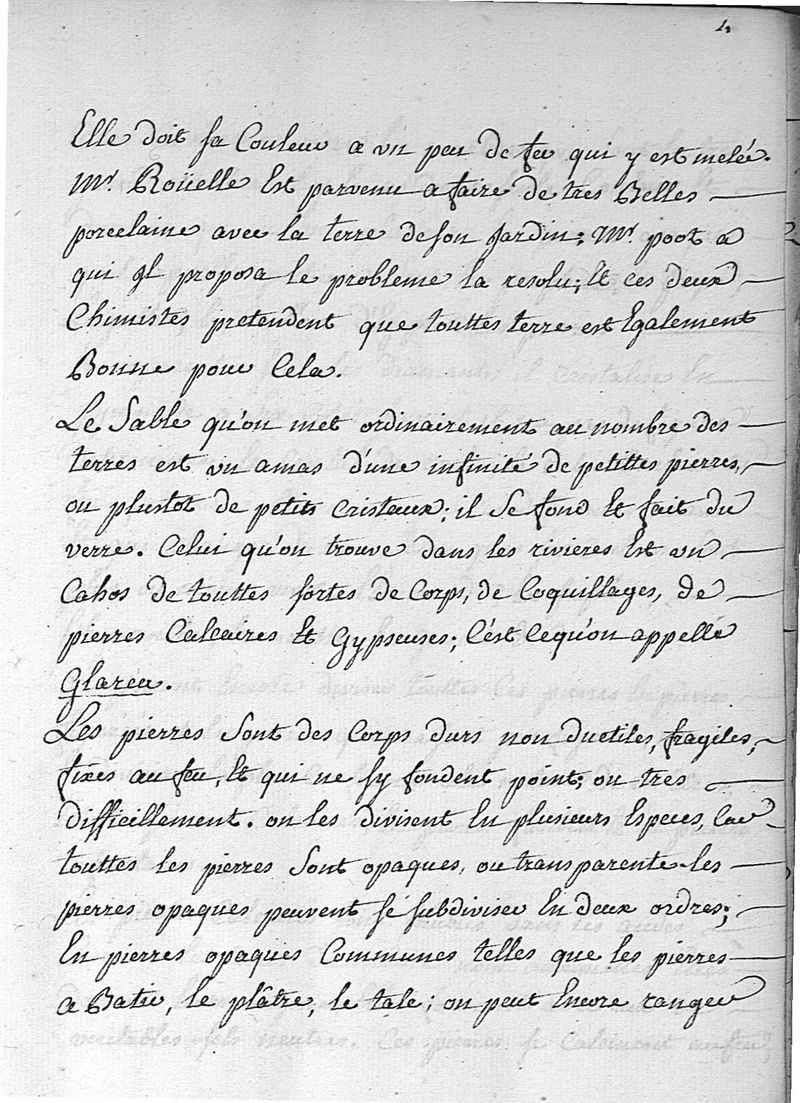 4
Elle doit sa Couleur a vn peu de feu qui y est melée.
Mr. Roüelle Est parvenu a faire de tres Belles
porcelaine avec la terre de son Jardin; Mr. poot a
qui Jl proposa le probleme la resolu; Et ces deux
Chimistes pretendent que touttes terre est Egalement
Bonne pour Cela.
Le Sable qu'on met ordinairement au nombre des
terres est vn amas d'une infinité de petittes pierres,
ou plustot de petits cristaux; il Se fond Et fait du
verre. Celui qu'on trouve dans les rivieres Est vn
Cahos de touttes sortes de Corps, de Coquillages, de
pierres Calcaires Et Gypseuses; C'est Cequ'on appelle
Glarea.
Les pierres Sont des Corps durs non ductiles, fragiles,
fixes au feu, Et qui ne sy fondent point, ou tres
difficillement. on les divisent En plusieurs Especes, Car
touttes les pierres Sont opaques, ou transparente les
pierres opaques peuvent se subdiviser En deux ordres;
En pierres opaques Communes telles que les pierres
a Batir, le plâtre, le talc; on peut Encore ranger